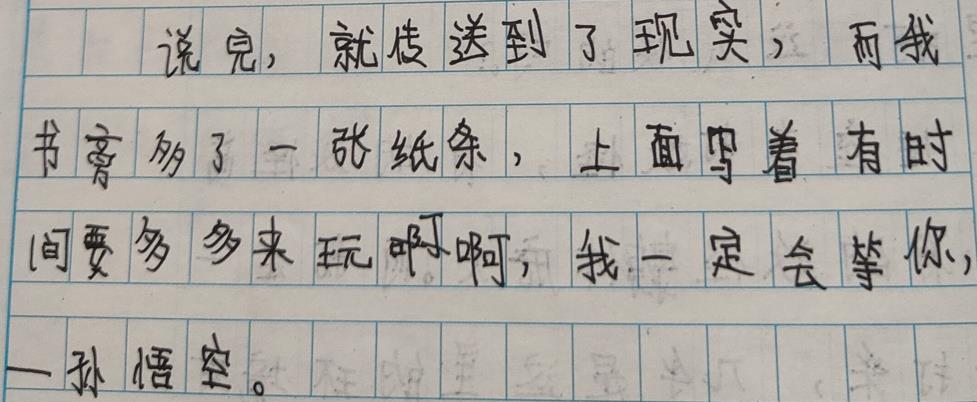 说完，就传送到了现实，而我
书膏多了一张纸条，上面写着有时
间要多多来玩啊啊，我一定会等你，
一孙悟空。